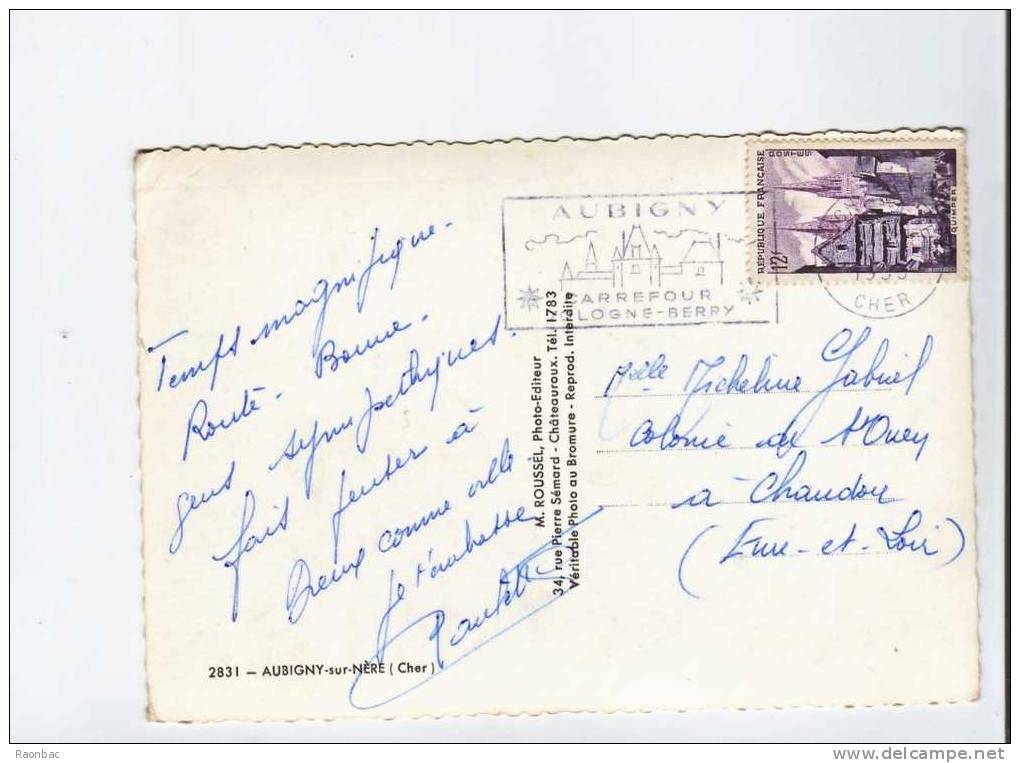 Temps magnifique -
Route - Bonne -
gens sympathiques.
fais penser à
Dreux comme ville.
Je t'embrasse
2831 – AUBIGNY-sur-NÈRE ( Cher )
M. ROUSSEL, Photo-Editeur
34, rue Pierre Sémard - Châteauroux. Tél. 1783
Véritable Photo au Bromure - Reprod. Interdite
AUBIGNY
CARREFOUR
LOGNE-BERRY
RÉPUBLIQUE FRANÇAISE
POSTES
12F
QUIMPER
CHER
Melle Micheline Gabriel
Colonie de St Ouen
à Chaudon
(Eure-et-Loir)
Raonbac
http://www.delcampe.net